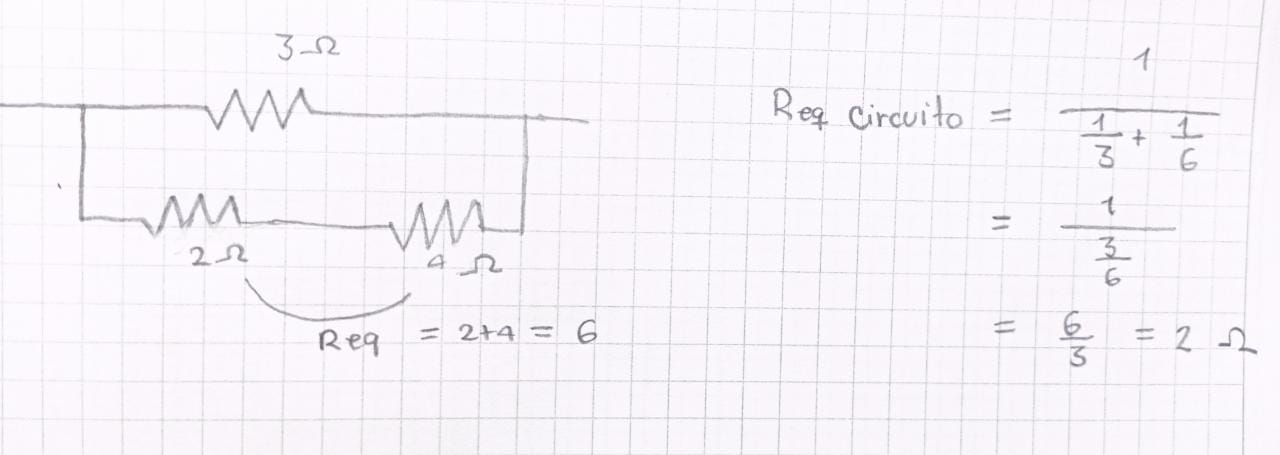 3 Ω
2 Ω
4 Ω
Req = 2+4 = 6
Req circuito = 1 / (1/3 + 1/6)
= 1 / (3/6)
= 6/3 = 2 Ω